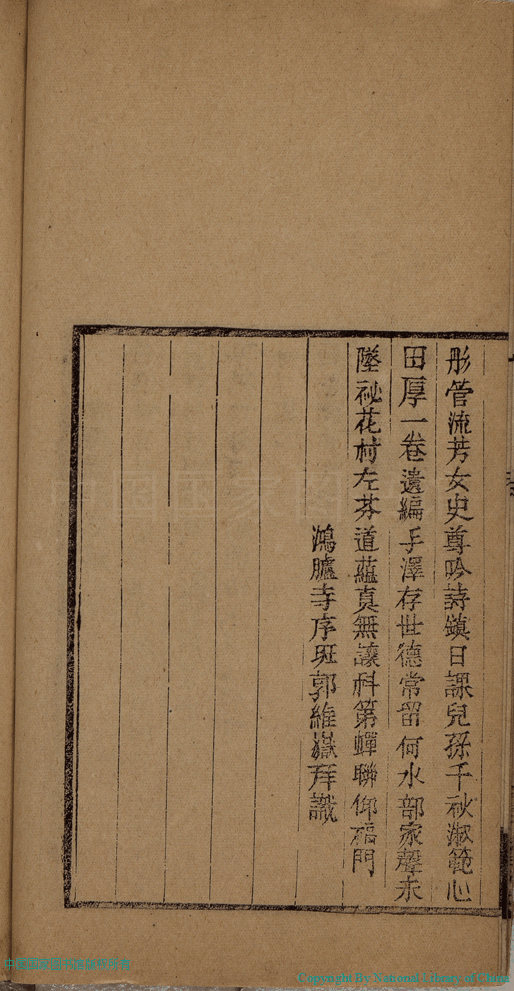 彤管流芳女史尊吟詩鎮日課兒孫千秋淑範心
田厚一卷遺編手澤存世德常留何水部家聲未
墜祕花村左芬道蘊真無讓科第蟬聯仰福門
鴻臚寺序班郭維嶽拜識
Copyright By National Library of China